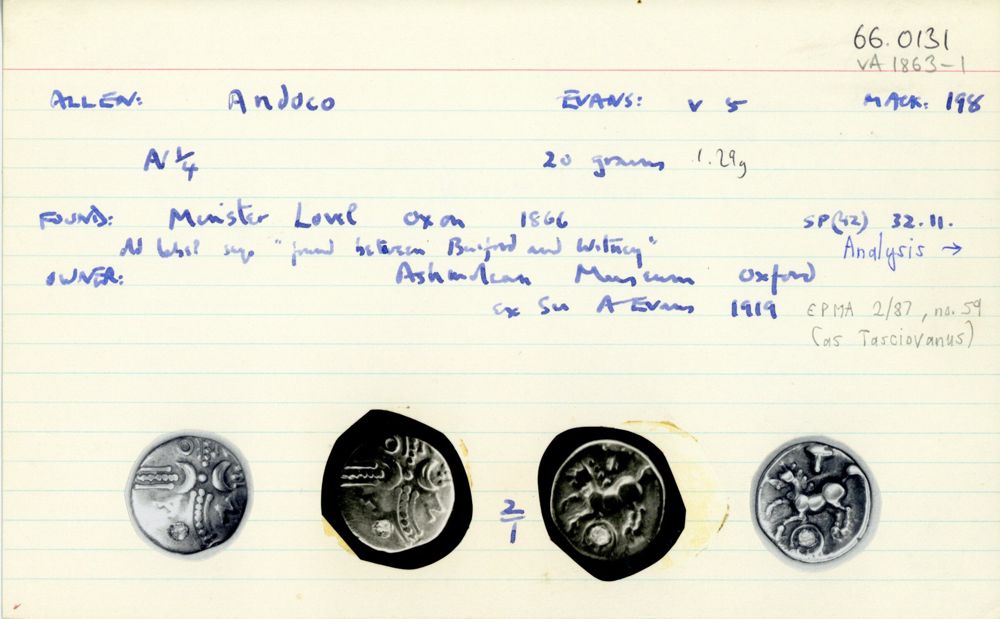 66.0131
VA 1863-1
ALLEN: Andoco EVANS: V 5 MACK: 198
N 1/4 20 grains 1.29g
FOUND: Minister Lovel Oxon 1866 SP(42) 32.11.
Old label says "found between Burford and Witney" Analysis →
OWNER: Ashmolean Museum Oxford
ex Sir A Evans 1919 EPMA 2/87, no. 59
(as Tasciovanus)
2/1